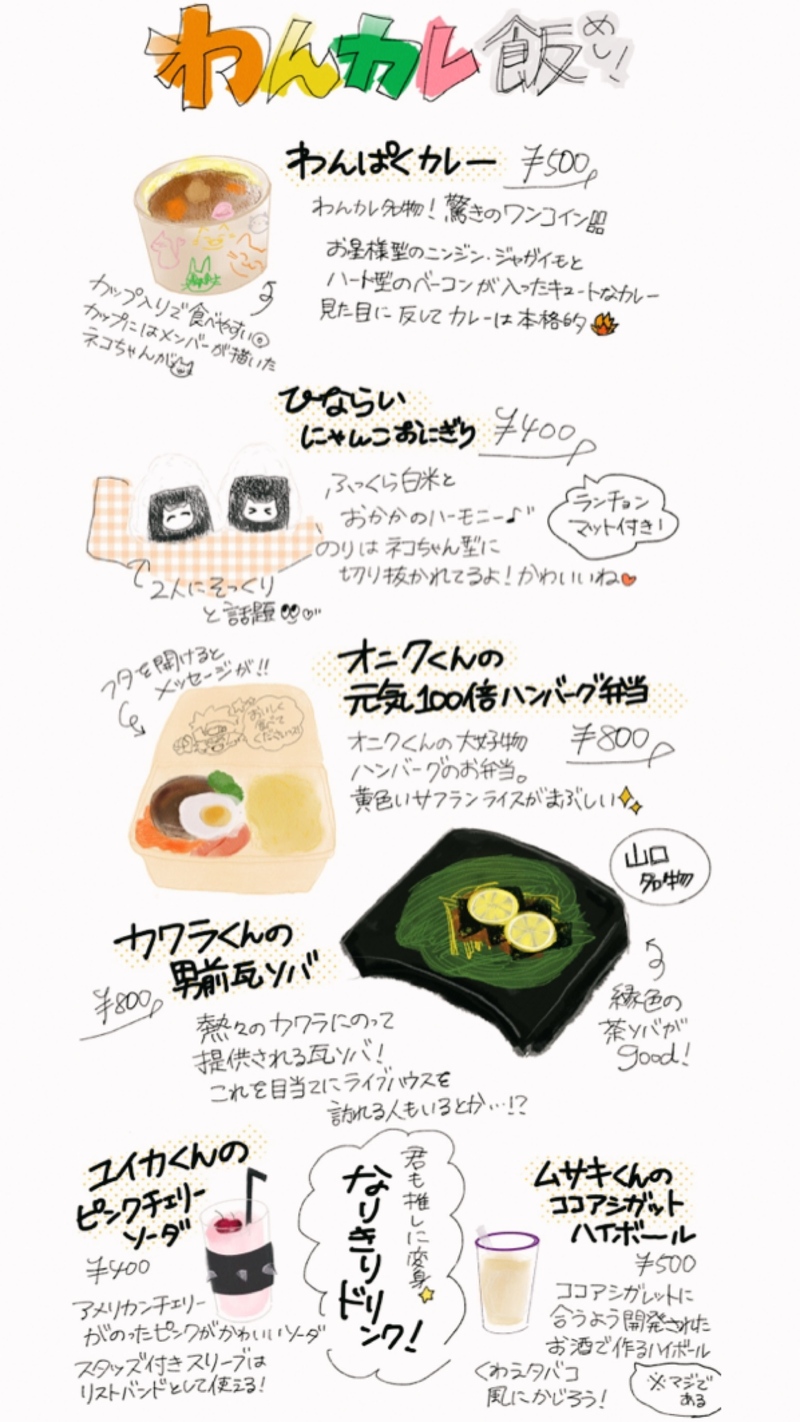 わんカレ飯めし!
わんぱくカレー ¥500
わんカレ名物!驚きのワンコイン!!
お星様型のニンジン・ジャガイモと
ハート型のベーコンが入ったキュートなカレー
見た目に反してカレーは本格的
カップ入りで食べやすい◎
カップにはメンバーが描いた
ネコちゃんが
ひならい
にゃんこおにぎり ¥400
ふっくら白米と
おかかのハーモニー♪
のりはネコちゃん型に
切り抜かれてるよ!かわいいね
ランチョン
マット付き!
2人にそっくり
と話題
オニクくんの
元気100倍ハンバーグ弁当
¥800
オニクくんの大好物
ハンバーグのお弁当。
黄色いサフランライスがまぶしい
フタを開けると
メッセージが!!
おいしく
食べて
くださいっ!
カワラくんの
男前瓦ソバ
¥800
熱々のカワラにのって
提供される瓦ソバ!
これを目当てにライブハウスを
訪れる人もいるとか…!?
山口
名物
緑色の
茶ソバが
good!
ユイカくんの
ピンクチェリー
ソーダ
¥400
アメリカンチェリー
がのったピンクがかわいいソーダ
スタッズ付きスリーブは
リストバンドとして使える!
君も推しに変身
なりきり
ドリンク!
ムサキくんの
ココアシガット
ハイボール
¥500
ココアシガレットに
合うよう開発された
お酒で作るハイボール
くわえタバコ
風にかじろう!
※マジで
ある